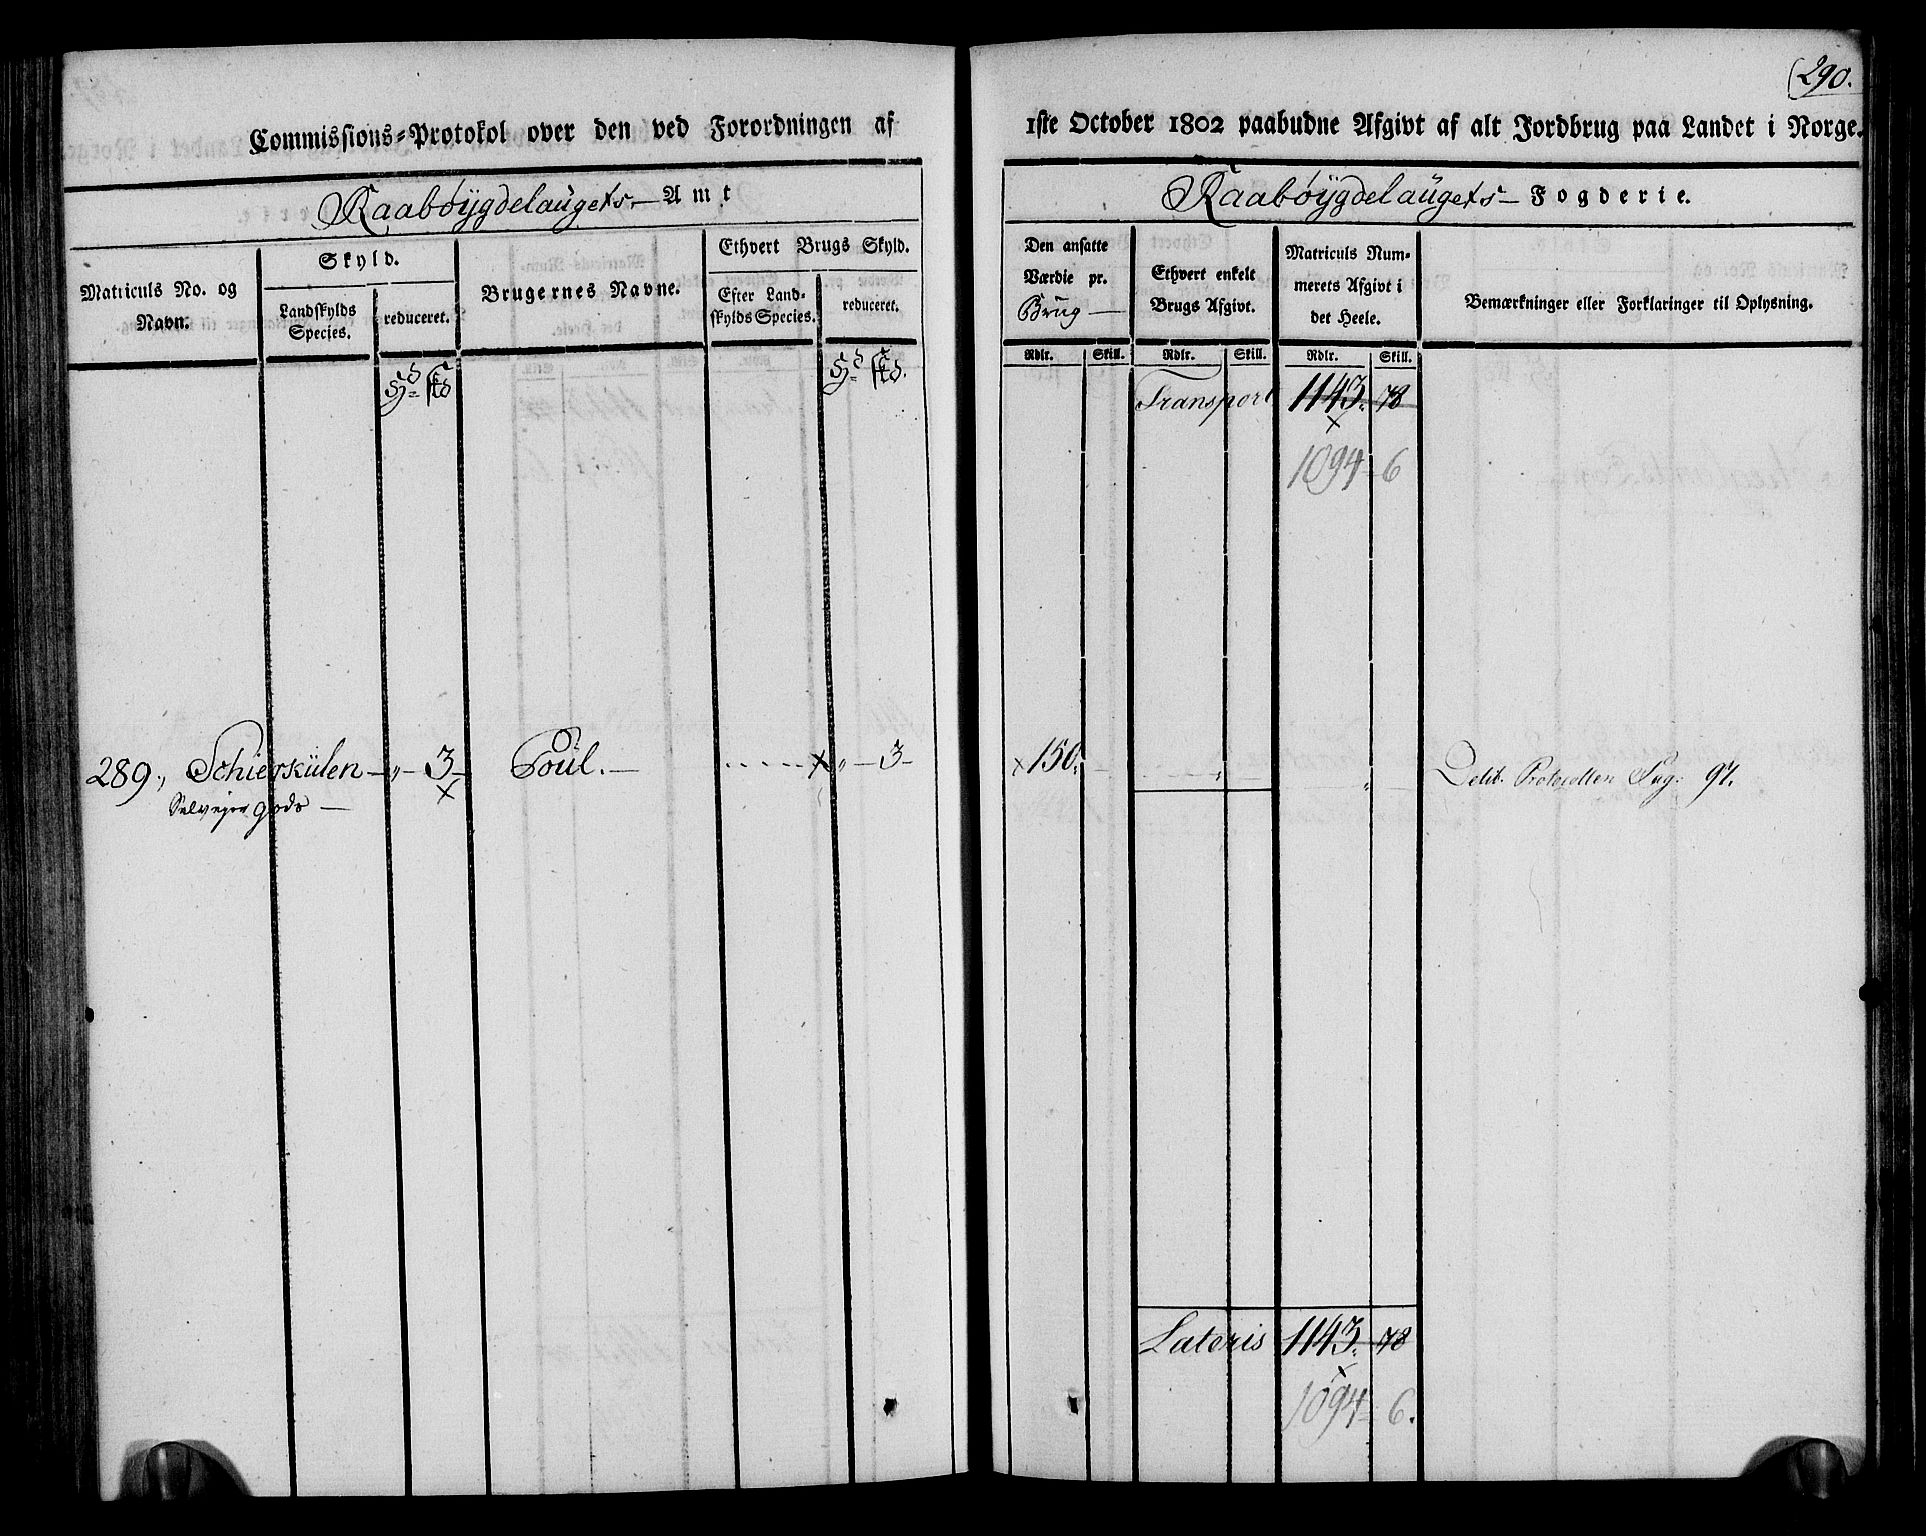 (290.
Commissions-Protokol over den ved Forordningen af 1ste October 1802 paabudne Afgivt af alt Jordbrug paa Landet i Norge.
Raabøygdelaugets- Amt
Raabøygdelaugets- Fogderie.
Matriculs No. og Navn.
Skyld.
Landskylds Species.
reduceret.
Brugernes Navne.
Ethvert Brugs Skyld.
Efter Landskylds Species.
reduceret.
Den ansatte Værdie pr. Brug
Ethvert enkelt Brugs Afgivt.
Matriculs Nummerets Afgivt i det Heele.
Bemærkninger eller Forklaringer til Oplysning.
Rdlr. Skill. Rdlr. Skill. Rdlr. Skill.
Transport 1143. 78
1094 - 6
289., Schierkülen - „ - 3 - Poül. - „ - 3 - × 150. Delib. Protocollen Pag: 97.
Selvejer gods -
Lateris 1143. 78
1094 - 6.